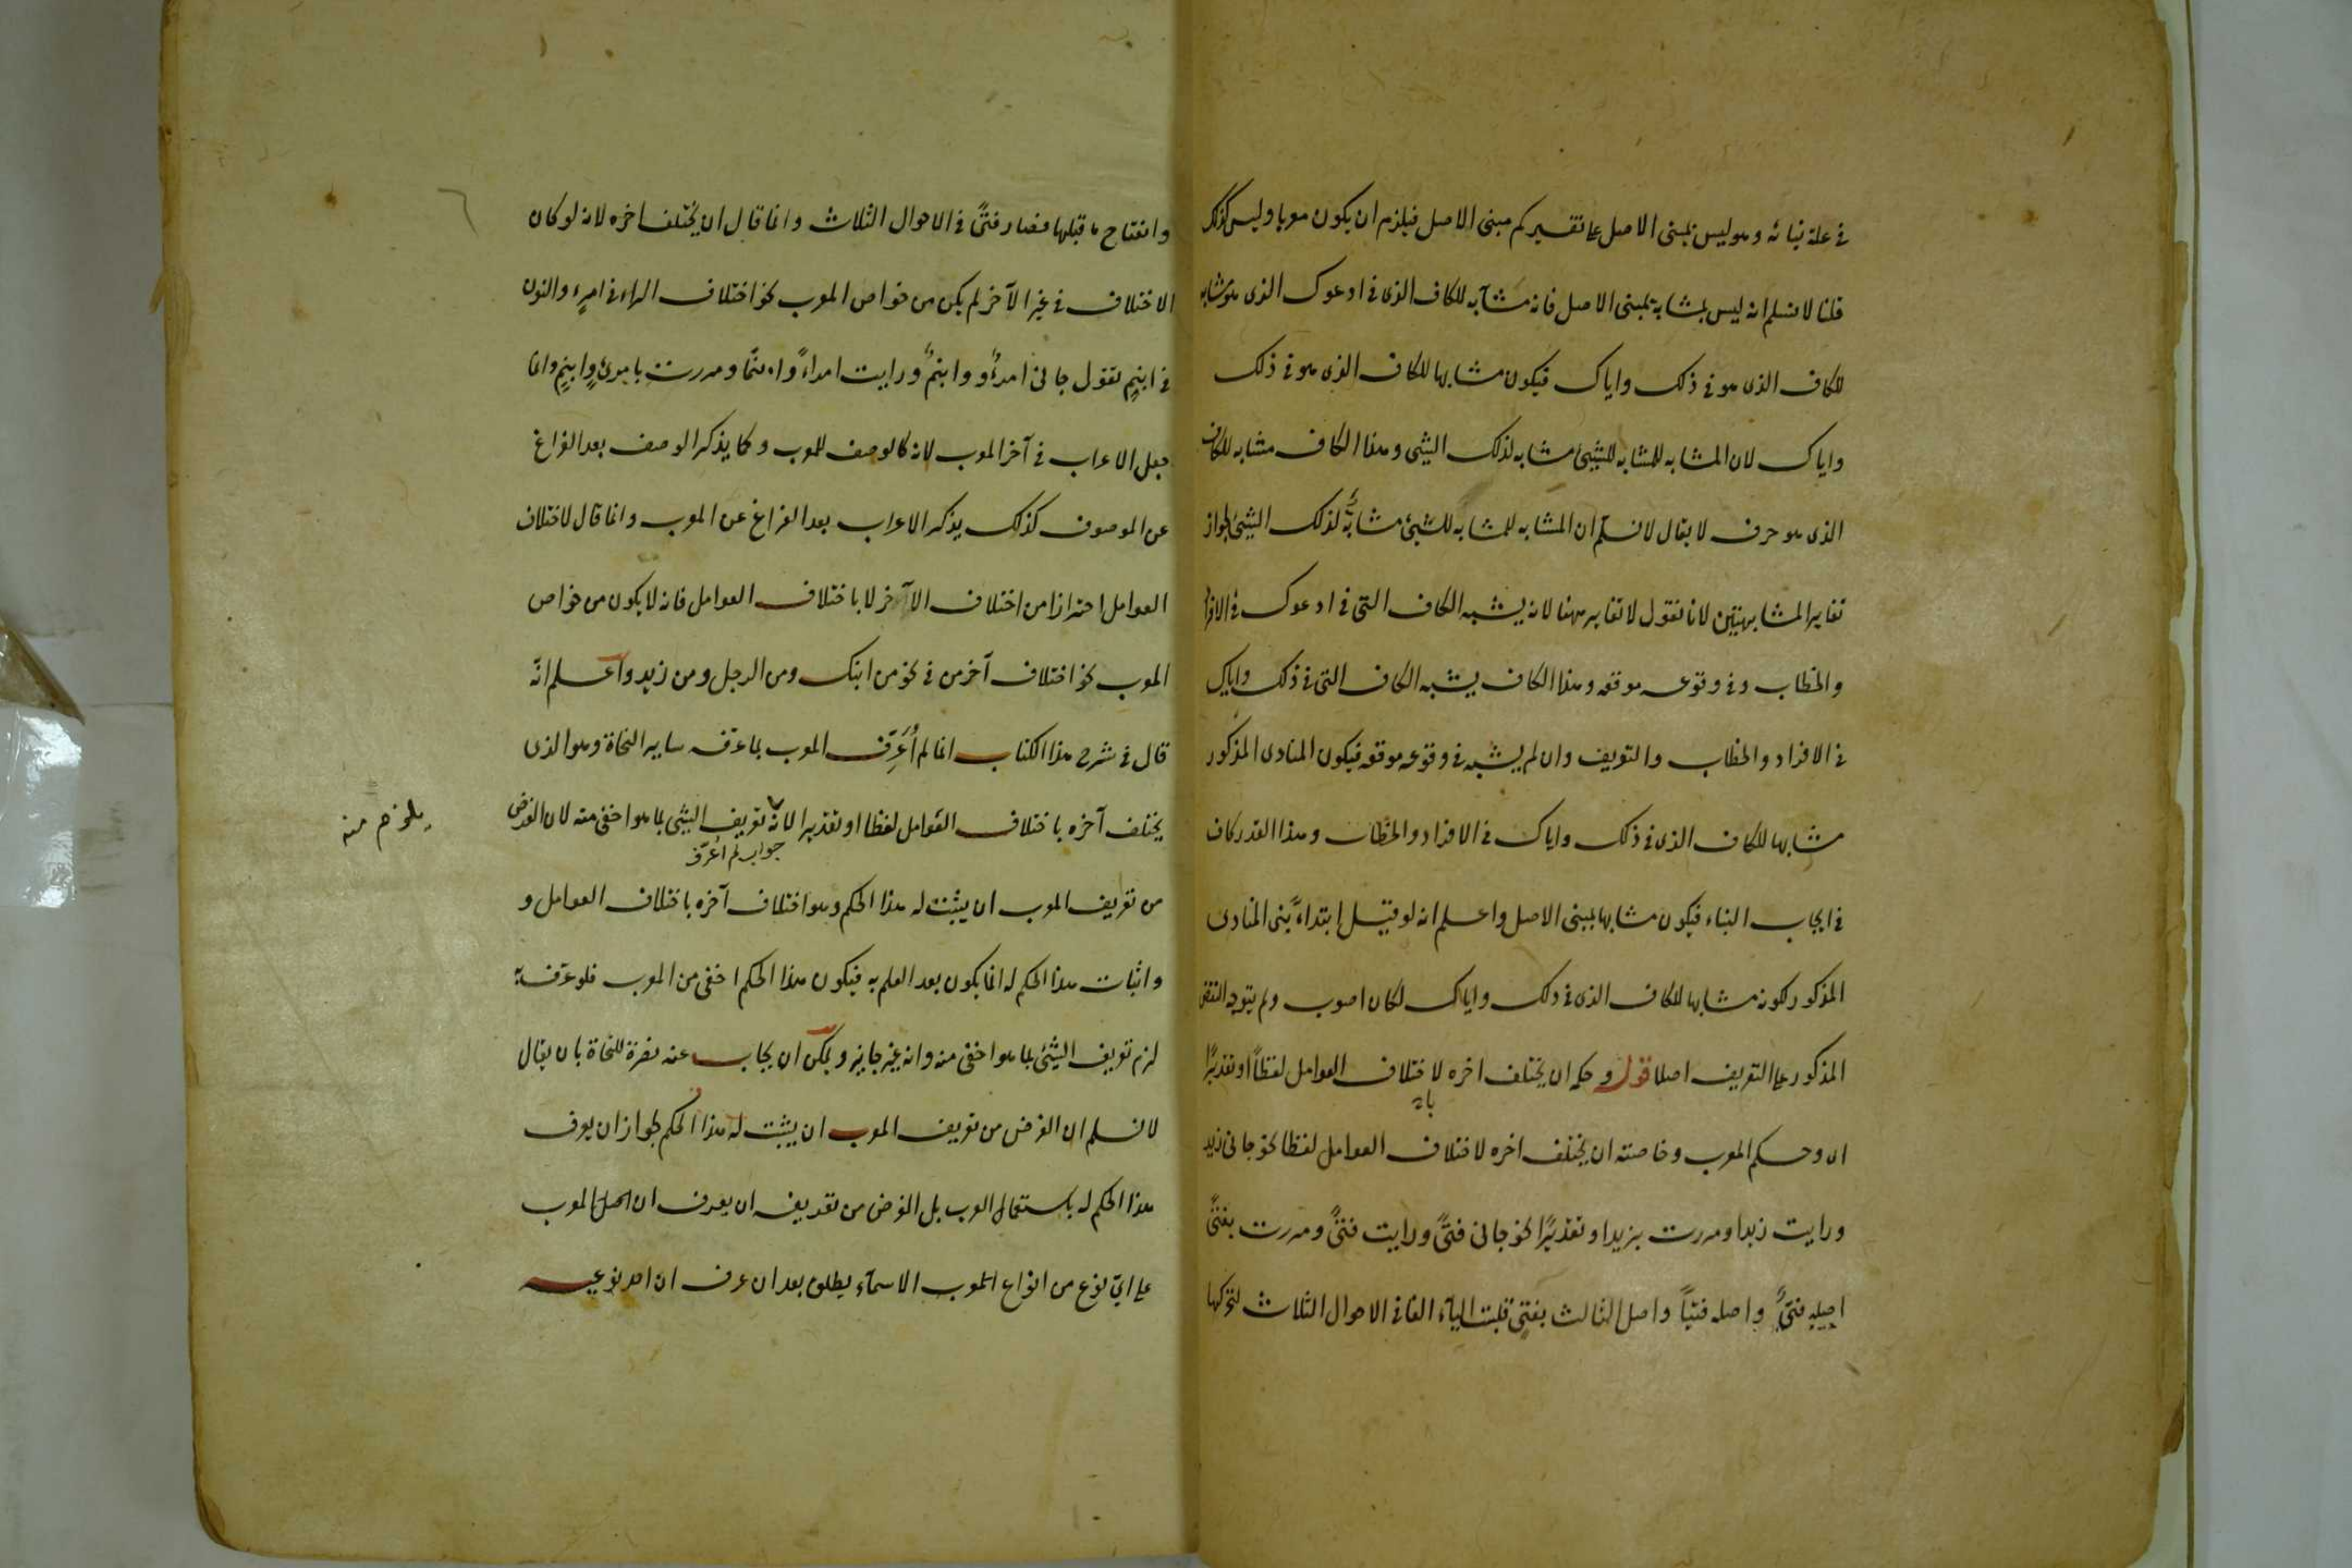 في علة بنائه وهو ليس بمبنى الاصل على تفسيركم مبنى الاصل فيلزم ان يكون معربا وليس كذلك
قلنا لا نسلم انه ليس بمشابه بمبنى الاصل فانه مشابه للكاف الذى في ادعوك الذى هو مشابه
للكاف الذى هو في ذلك واياك فيكون مشابها للكاف الذى هو في ذلك
واياك لان المشابه للمشابه للشيئ مشابه لذلك الشيئ وهذا الكاف مشابه للكاف
الذى هو حرف لا يقال لا نسلم ان المشابه للمشابه للشيئ مشابه لذلك الشيئ لجواز
تغاير المشابهتين لانا نقول لا تغاير ههنا لانه يشبه الكاف التى في ادعوك في الافراد
والخطاب وفي وقوعه موقعه وهذا الكاف يشبه الكاف التى في ذلك واياك
في الافراد والخطاب والتعريف وان لم يشبه في وقوعه موقعه فيكون المنادى المذكور
مشابها للكاف الذى في ذلك واياك في الافراد والخطاب وهذا القدر كاف
في ايجاب البناء فيكون مشابها بمبنى الاصل واعلم انه لو قيل ابتداءً بنى المنادى
المذكور لكونه مشابها للكاف الذى في ذلك واياك لكان اصوب ولم يتوجه النقض
المذكور على التعريف اصلا قوله وحكمه ان يختلف اخره لاختلاف العوامل لفظاً او تقديرًا
با
اى وحكم المعرب وخاصته ان يختلف اخره لاختلاف العوامل لفظا نحو جانى زيد
ورايت زيدا ومررت بزيد او تقديرًا نحو جانى فتًى ورايت فتًى ومررت بفتًى
اصله فتىٌ واصله فتياً واصل الثالث بفتىٍ قلبت الياء الفا في الاحوال الثلاث لتحركها
وانفتاح ما قبلها فصار فتًى في الاحوال الثلاث وانما قال ان يختلف اخره لانه لو كان
الاختلاف في غير الآخر لم يكن من خواص المعرب نحو اختلاف الراء في امرء والنون
في ابنم تقول جانى امرءٌ وابنمٌ ورايت امراءً وابنمًا ومررت بامرئٍ وابنمٍ وانما
جعل الاعراب في آخر المعرب لانه كالوصف للمعرب وكما يذكر الوصف بعد الفراغ
عن الموصوف كذلك يذكر الاعراب بعد الفراغ عن المعرب وانما قال لاختلاف
العوامل احترازا من اختلاف الآخر لا باختلاف العوامل فانه لا يكون من خواص
المعرب نحو اختلاف آخر من في نحو من ابنك ومن الرجل ومن زيد واعلم انّه
قال في شرح هذا الكتاب انما لم أُعَرِّف المعرب بما عرّفه ساير النحاة وهو الذى
يختلف آخره باختلاف العوامل لفظا او تقديرا لانّه تعريف الشيئ بما هو اخفى منه لان الغرض
جواب لم أعرّف
يلزم منه
من تعريف المعرب ان يثبت له هذا الحكم وهو اختلاف آخره باختلاف العوامل و
واثبات هذا الحكم له انما يكون بعد العلم به فيكون هذا الحكم اخفى من المعرب فلو عرّف به
لزم تعريف الشيئ بما هو اخفى منه وانه غير جايز ويمكن ان يجاب عنه نصرة للنحاة بان يقال
لا نسلم ان الغرض من تعريف المعرب ان يثبت له هذا الحكم لجواز ان يعرف
هذا الحكم له باستعمال العرب بل الغرض من تعريفه ان يعرف ان المعرب
على اىّ نوع من انواع الاسمآء يطلق بعد ان عرف ان احد نوعيه